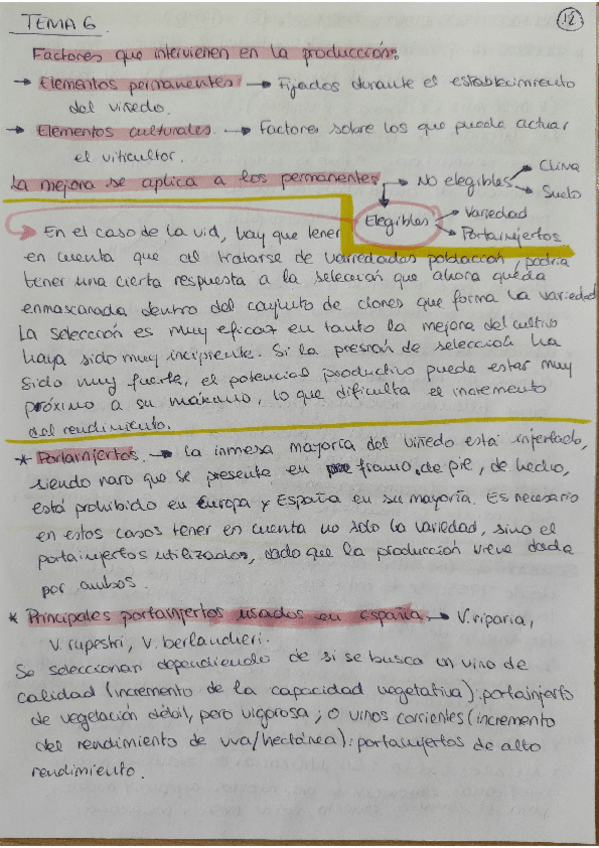 TEMA 6
12
Factores que intervienen en la producción:
→ Elementos permanentes → Fijados durante el establecimiento
del viñedo.
→ Elementos culturales → Factores sobre los que puede actuar
el viticultor.
La mejora se aplica a los permanentes → No elegibles → Clima
→ Suelo
Elegibles → Variedad
→ Portainjertos
En el caso de la vid, hay que tener
en cuenta que al tratarse de variedades población, podría
tener una cierta respuesta a la selección que ahora queda
enmascarada dentro del conjunto de clones que forma la variedad
La selección es muy eficaz en tanto la mejora del cultivo
haya sido muy incipiente. Si la presión de selección ha
sido muy fuerte, el potencial productivo puede estar muy
próximo a su máximo, lo que dificulta el incremento
del rendimiento.
* Portainjertos → la inmesa mayoría del viñedo está injertado,
siendo raro que se presente en franco de pie, de hecho,
está prohibido en Europa y España en su mayoría. Es necesario
en estos casos tener en cuenta no solo la variedad, sino el
portainjertos utilizados, dado que la producción viene dada
por ambos.
* Principales portainjertos usados en España → V. riparia,
V. rupestri, V. berlandieri.
Se seleccionan dependiendo de si se busca un vino de
calidad (incremento de la capacidad vegetativa): portainjerto
de vegetación débil, pero vigorosa; o vinos corrientes (incremento
del rendimiento de uva/hectárea): portainjertos de alto
rendimiento.